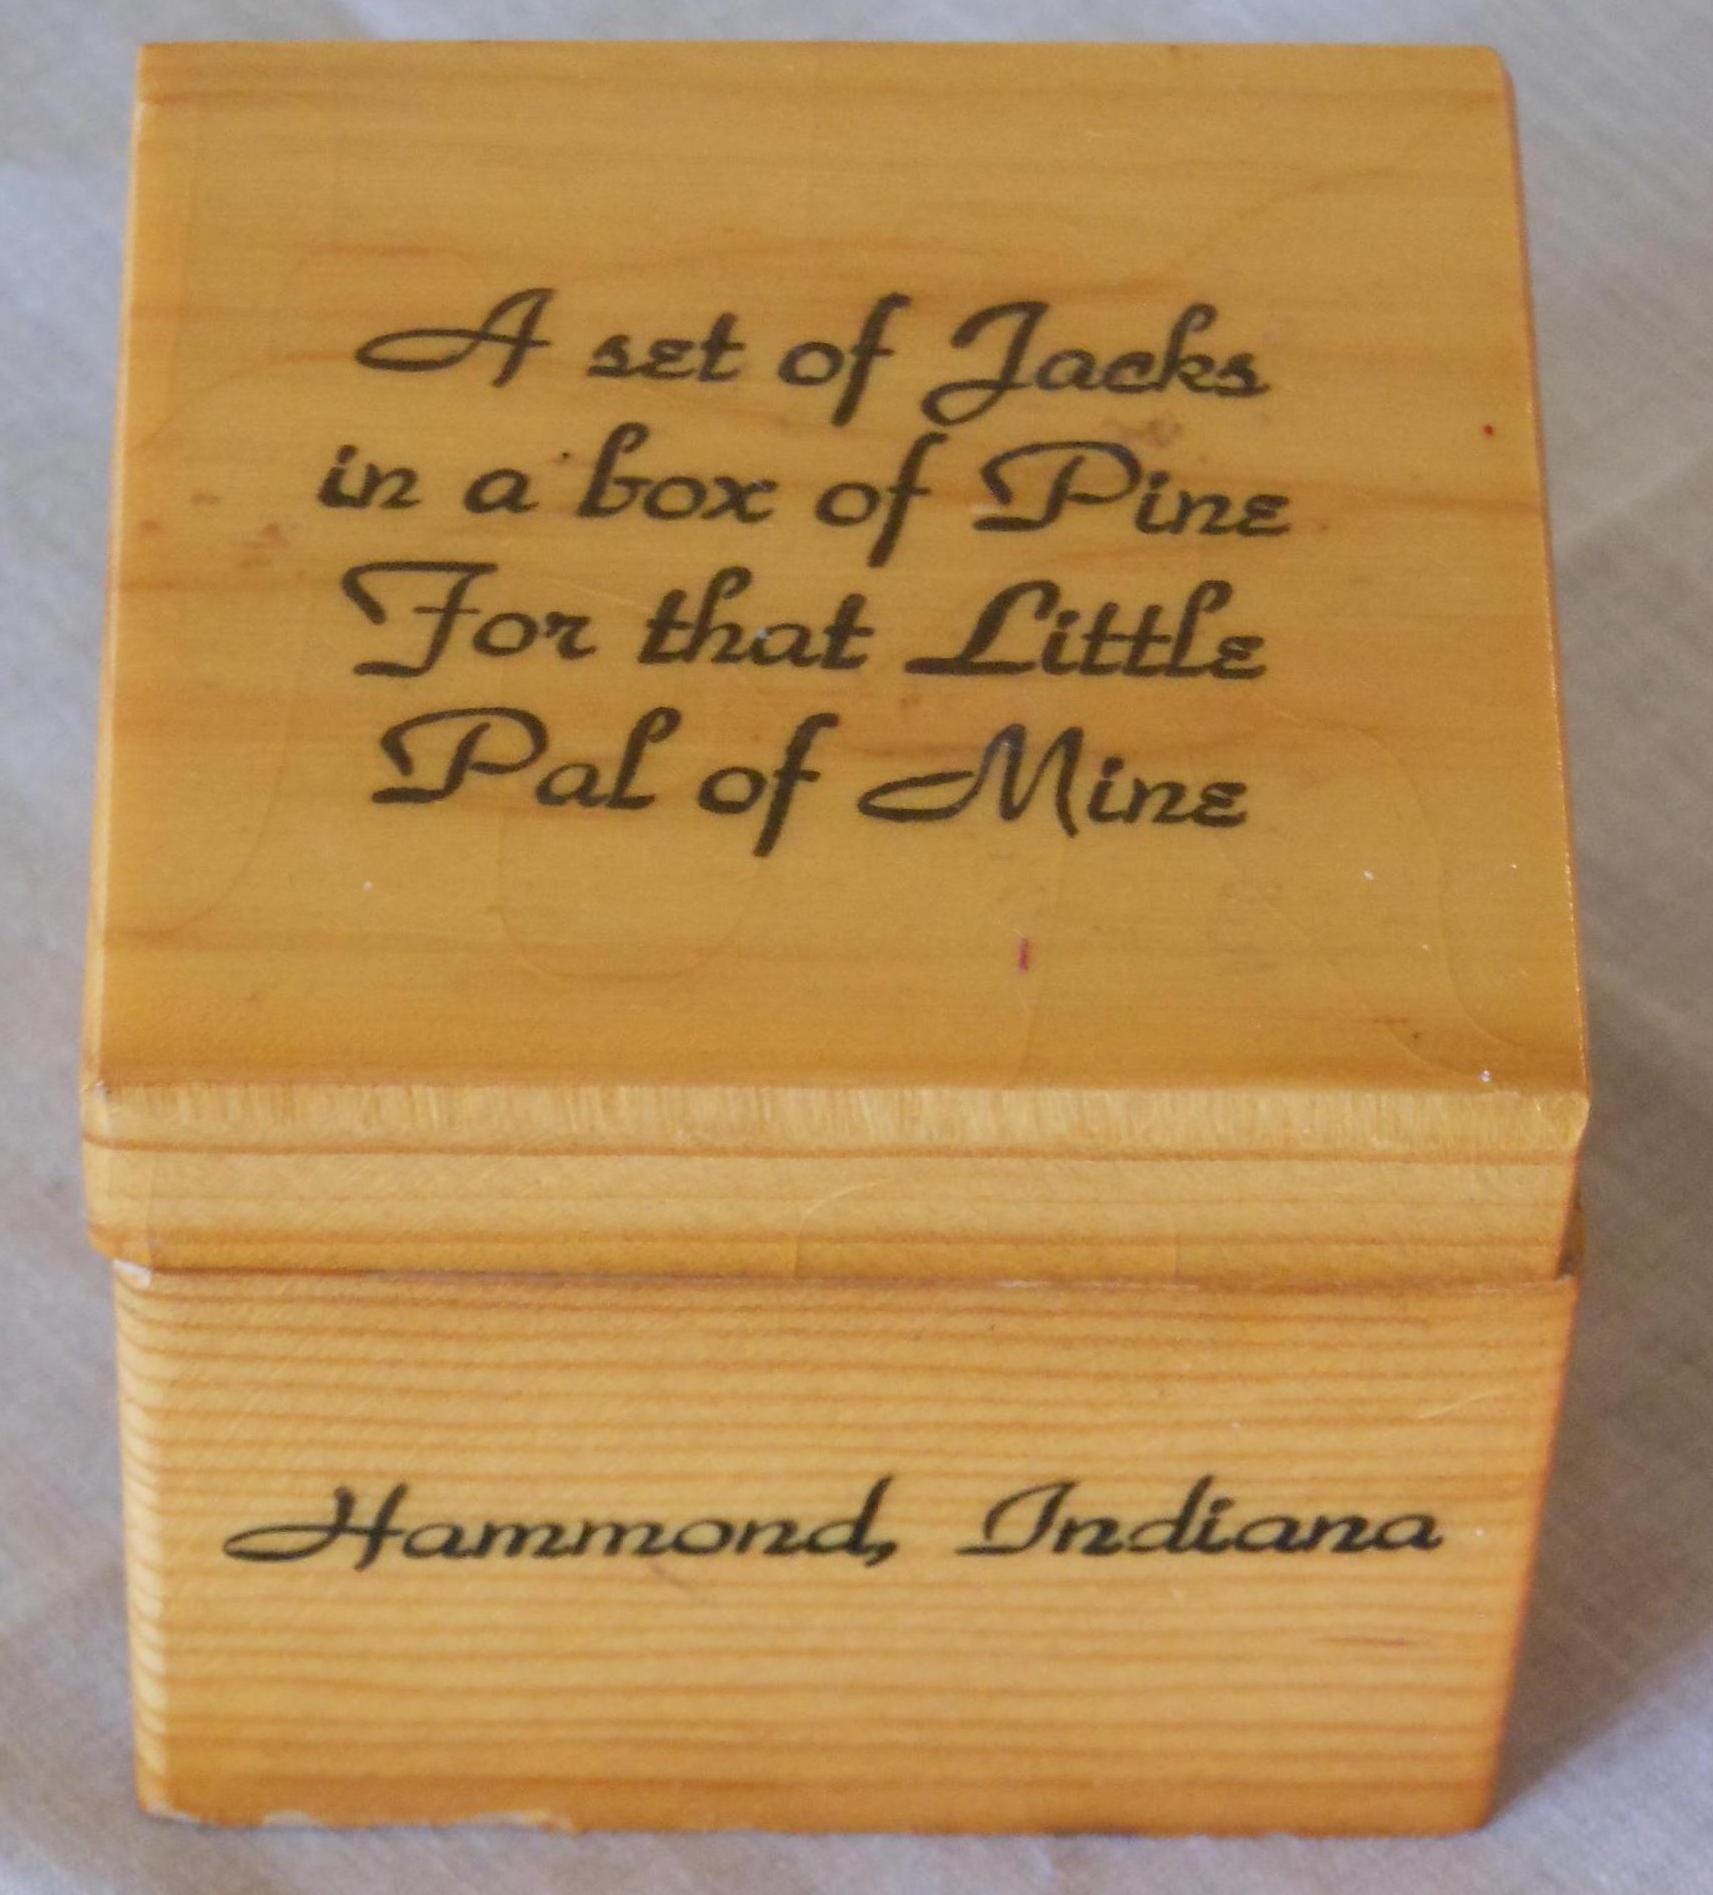 A set of Jacks
in a box of Pine
For that Little
Pal of Mine
Hammond, Indiana